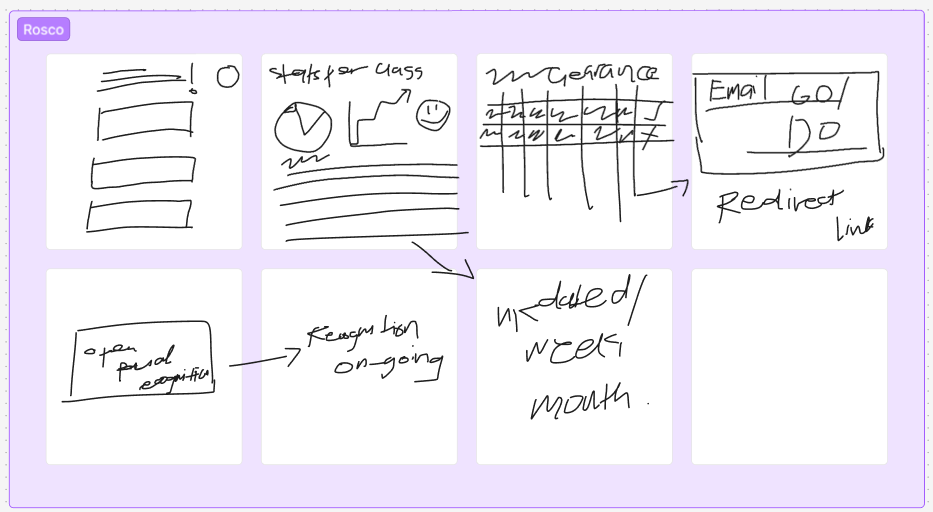 Rosco
stats per class
Clearance
Email GO/
DO
Redirect
link
open
Recognition
on-going
dated/
week
month.